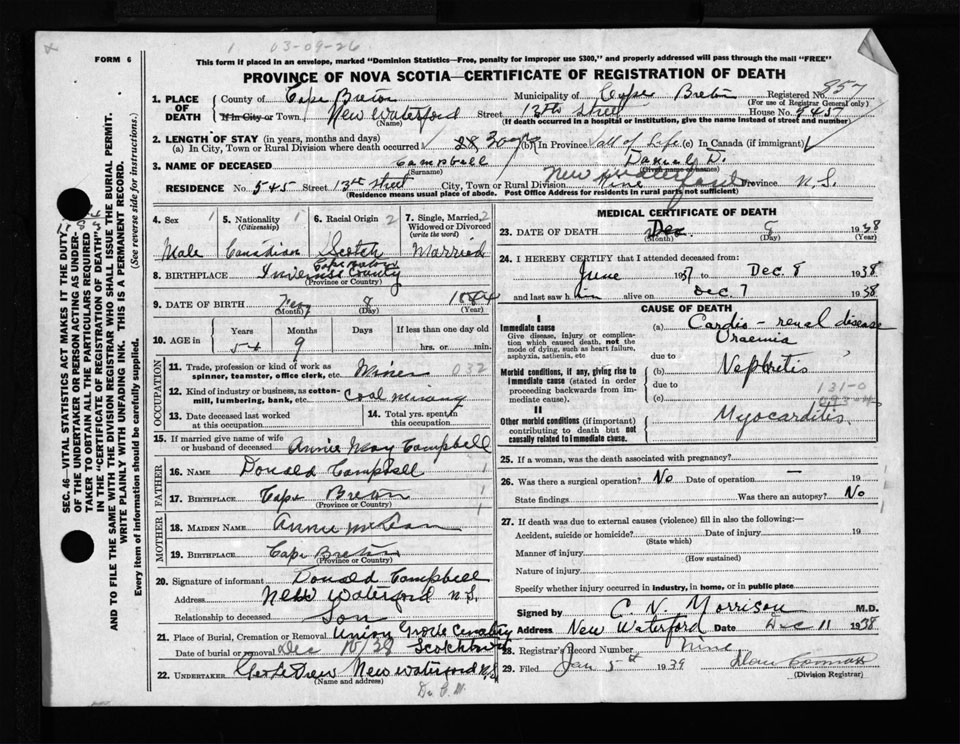 1 03-09-26
FORM 6
This form if placed in an envelope, marked "Dominion Statistics—Free, penalty for improper use $300," and properly addressed will pass through the mail "FREE"
PROVINCE OF NOVA SCOTIA—CERTIFICATE OF REGISTRATION OF DEATH
1. PLACE OF DEATH
County of Cape Breton Municipality of Cape Breton Registered No. 857
(For use of Registrar General only)
If in City or Town New Waterford Street 13th Street House No. 545
(Name) (If death occurred in a hospital or institution, give the name instead of street and number)
2. LENGTH OF STAY (in years, months and days)
(a) In City, Town or Rural Division where death occurred 28 (b) In Province all of Life (c) In Canada (if immigrant)
3. NAME OF DECEASED Campbell Daniel D.
(Surname) (Given name or names)
RESIDENCE No. 545 Street 13th street City, Town or Rural Division New Waterford Province N.S.
(Residence means usual place of abode. Post Office Address for residents in rural parts not sufficient)
SEC. 46—VITAL STATISTICS ACT MAKES IT THE DUTY
OF THE UNDERTAKER OR PERSON ACTING AS UNDER-
TAKER TO OBTAIN ALL THE PARTICULARS REQUIRED
IN THE "CERTIFICATE OF REGISTRATION OF DEATH"
AND TO FILE THE SAME WITH THE DIVISION REGISTRAR WHO SHALL ISSUE THE BURIAL PERMIT.
WRITE PLAINLY WITH UNFADING INK. THIS IS A PERMANENT RECORD.
Every item of information should be carefully supplied. (See reverse side for instructions.)
4. Sex 1 5. Nationality 1 6. Racial Origin 2 7. Single, Married, 2
(Citizenship) Widowed or Divorced
(write the word)
Male Canadian Scotch Married
8. BIRTHPLACE Inverness County
Cape Breton
(Province or Country)
9. DATE OF BIRTH 8 1884
(Month) (Day) (Year)
10. AGE in Years Months Days If less than one day old
54 9 hrs. or min.
OCCUPATION
11. Trade, profession or kind of work as
spinner, teamster, office clerk, etc. Miner 032
12. Kind of industry or business, as cotton-
mill, lumbering, bank, etc. Coal Mining
13. Date deceased last worked
at this occupation
14. Total yrs. spent in
this occupation
15. If married give name of wife
or husband of deceased Annie May Campbell
FATHER
16. NAME Donald Campbell 1
17. BIRTHPLACE Cape Breton 1
(Province or Country)
MOTHER
18. MAIDEN NAME Annie McLean
19. BIRTHPLACE Cape Breton 1
(Province or Country)
20. Signature of informant Donald Campbell
Address New Waterford N.S.
Relationship to deceased Son
21. Place of Burial, Cremation or Removal Union Grove Cemetery
Date of burial or removal Dec 10/38
22. UNDERTAKER New Waterford N.S.
(Name and address)
MEDICAL CERTIFICATE OF DEATH
23. DATE OF DEATH Dec 8 1938
(Month) (Day) (Year)
24. I HEREBY CERTIFY that I attended deceased from:
June 1937 to Dec. 8 1938
and last saw him alive on Dec. 7 1938
CAUSE OF DEATH
I
Immediate cause
Give disease, injury or complica-
tion which caused death, not the
mode of dying, such as heart failure,
asphyxia, asthenia, etc
(a) Cardio-renal disease
Uraemia
due to
Morbid conditions, if any, giving rise to
immediate cause (stated in order
proceeding backwards from im-
mediate cause).
(b) Nephritis
due to
(c) 131-0
II
Other morbid conditions (if important)
contributing to death but not
causally related to immediate cause.
Myocarditis
25. If a woman, was the death associated with pregnancy?
26. Was there a surgical operation? No Date of operation — 19
State findings Was there an autopsy? No
27. If death was due to external causes (violence) fill in also the following:—
Accident, suicide or homicide? Date of injury 19
(State which)
Manner of injury
(How sustained)
Nature of injury
Specify whether injury occurred in industry, in home, or in public place
Signed by C. N. Morrison M.D.
Address New Waterford Date Dec 11 1938
28. Registrar's Record Number Nine
29. Filed Jan 5th 1939
(Division Registrar)